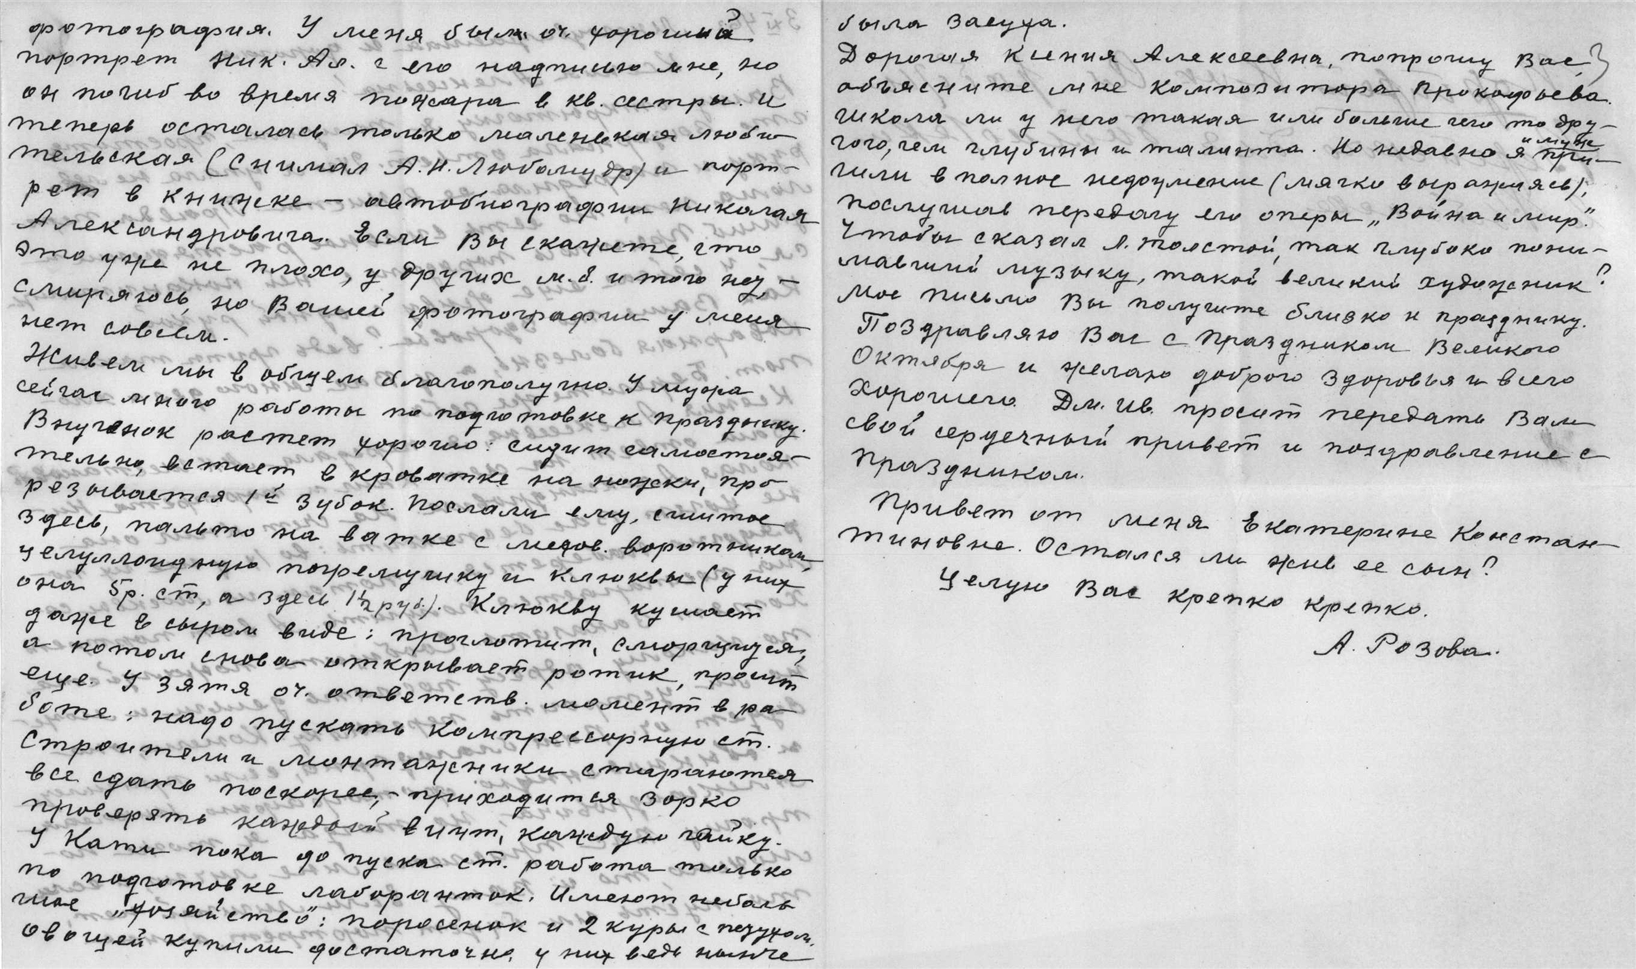 фотография. У меня был оч. хороший
портрет Ник. Ал. с его надписью мне, но
он погиб во время пожара в кв. сестры. И
теперь осталась только маленькая люби-
тельская (снимал А.Н. Любомудр) и порт-
рет в книжке – автобиографии Николая
Александровича. Если Вы скажете, что
это уже не плохо, у других м.б. и того нет, –
смиряюсь, но Вашей фотографии у меня
нет совсем.
Живем мы в общем благополучно. У мужа
сейчас много работы по подготовке к празднику.
Внучонок растет хорошо: сидит самостоя-
тельно, встает в кроватке на ножки, про-
резывается 1й зубок. Послали ему, сшитое
здесь, пальто на ватке с мехов. воротником,
целуллоидную погремушку и клюквы (у них
она 5р. ст, а здесь 1½ руб.). Клюкву кушает
даже в сыром виде: проглотит, сморщится,
а потом снова открывает ротик, просит
еще. У зятя оч. ответств. момент в ра-
боте: надо пускать компрессорную ст.
Строители и монтажники стараются
все сдать поскорее, – приходится зорко
проверять каждый винт, каждую гайку.
У Кати пока до пуска ст. работа только
по подготовке лаборанток. Имеют неболь
шое „хозяйство": поросенок и 2 куры с петухом.
Овощей купили достаточно, у них ведь нынче
была засуха.
Дорогая Ксения Алексеевна, попрошу Вас,
объясните мне композитора Прокофьева.
Школа ли у него такая или больше чего то дру-
гого, чем глубины и таланта. Но недавно я и муж при-
шли в полное недоумение (мягко выражаясь),
послушав передачу его оперы „Война и мир".
Чтобы сказал Л. Толстой, так глубоко пони-
мавший музыку, такой великий художник?
Мое письмо Вы получите близко к празднику.
Поздравляю Вас с Праздником Великого
Октября и желаю доброго здоровья и всего
хорошего. Дм. Ив. просит передать Вам
свой сердечный привет и поздравление с
праздником.
Привет от меня Екатерине Констан-
тиновне. Остался ли жив ее сын?
Целую Вас крепко крепко.
А. Розова.